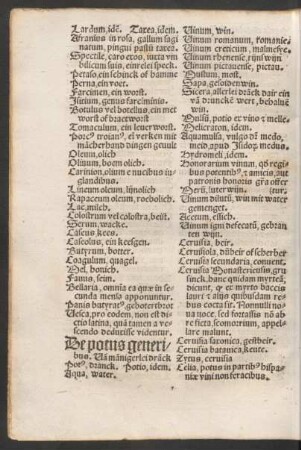 Lardum, idē. Taxea, idem.
Afranius in rosa, gallum sagi
natum, pingui pastū taxea.
Spectile, caro exos, iuxta vm
bilicum suis, ein velei speck.
Petaso, ein schinck of hamme
Perna, ein voet.
Farcimen, ein worst.
Isitium, genus farciminis.
Botulus vel botellus, ein met
worst of braetworst
Tomaculum, ein leuer worst.
Porcꝰ troianꝰ, eī verken mit
mācherhand dingen geuult
Oleum, olich
Oliuum, boem olich.
Carinion, olium e nucibus iu
glandibus.
Lineum oleum, lijnolich
Rapaceum oleum, roebolich
Lac, milch.
Colostrum vel colostra, beist.
Serum, wacke.
Caseus kees.
Caseolus, ein keesgen.
Butyrum, botter.
Coagulum, quagel.
Mel, honich.
Fauus, seim.
Bellaria, omnia ea quæ in se
cunda mensa apponuntur.
Panis butyratꝰ, geboterbrot
Uesca, pro eodem. non est di
ctio latina, quā tamen a ve
scendo deduxisse videntur.
De potus generi
bus. Uā mānigerlei drāck
Potꝰ, dranck. Potio, idem.
Aqua, water.
Uinum, win.
Uinum romanum, romanie.
Uinum creticum, malmesye.
Uinum rhenense, rijns wijn
Uinum pictauense, pictau.
Mustum, most.
Sapa, gesoden win.
Sicera, allerlei drāck dair ein
vā drunckē wert, behaluē
win.
Mulsū, potio ex vino & melle.
Melicratom, idem.
Aquamulsa, vulgo dr̄ medo,
meid, apud Isidoꝝ. medus.
Hydromeli, idem.
Honorarium vinum, qd regi
bus potentibꝰ, & amicis, aut
parrochis honoris grā offert̄
Merū, luter wijn.
Dilutū vinum, win mit water
gemenget.
Acetum, essich.
Uinum igni defecatū, gebran
ten wijn.
Ceruisia, beir.
Ceruisiola, dū beir of scherbeir
Ceruisia secundaria, conuent.
Ceruisia Monasteriensis, gru
sinck, hanc quidam myrteū,
bacchū dicunt, q̄ ex myrtetis
lauri & aliis quibusdam rebus
cocta sit. Homulli no
ua noce, sed fortassis nō ab
re ficta scenuarium, appel
lare malunt.
Ceruisia saxonica, gestbeir.
Ceruisia batauica, keute.
Zytus, ceruisia
Celia, potus in partibꝰ hispa
niæ vini non feracibus.